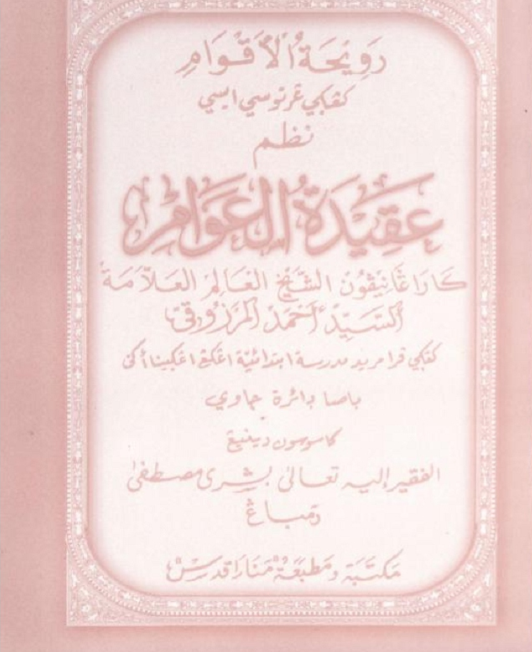 رويحة الأقوام
كڠڮي ڠرتوسي ايسي
نظم
عقيدة العوام
كاراڠانيڤون الشيخ العالم العلامة
السيد أحمد المرزوقي
كڠڮي فرا مريد مدرسة ابتدائية اڠكڠ اڠڮيناأكن
باصا دائرة جاوي
كاسوسون دينيڠ
الفقير إليه تعالى بشرى مصطفى
رمباڠ
مكتبة ومطبعة "منارا قدس"